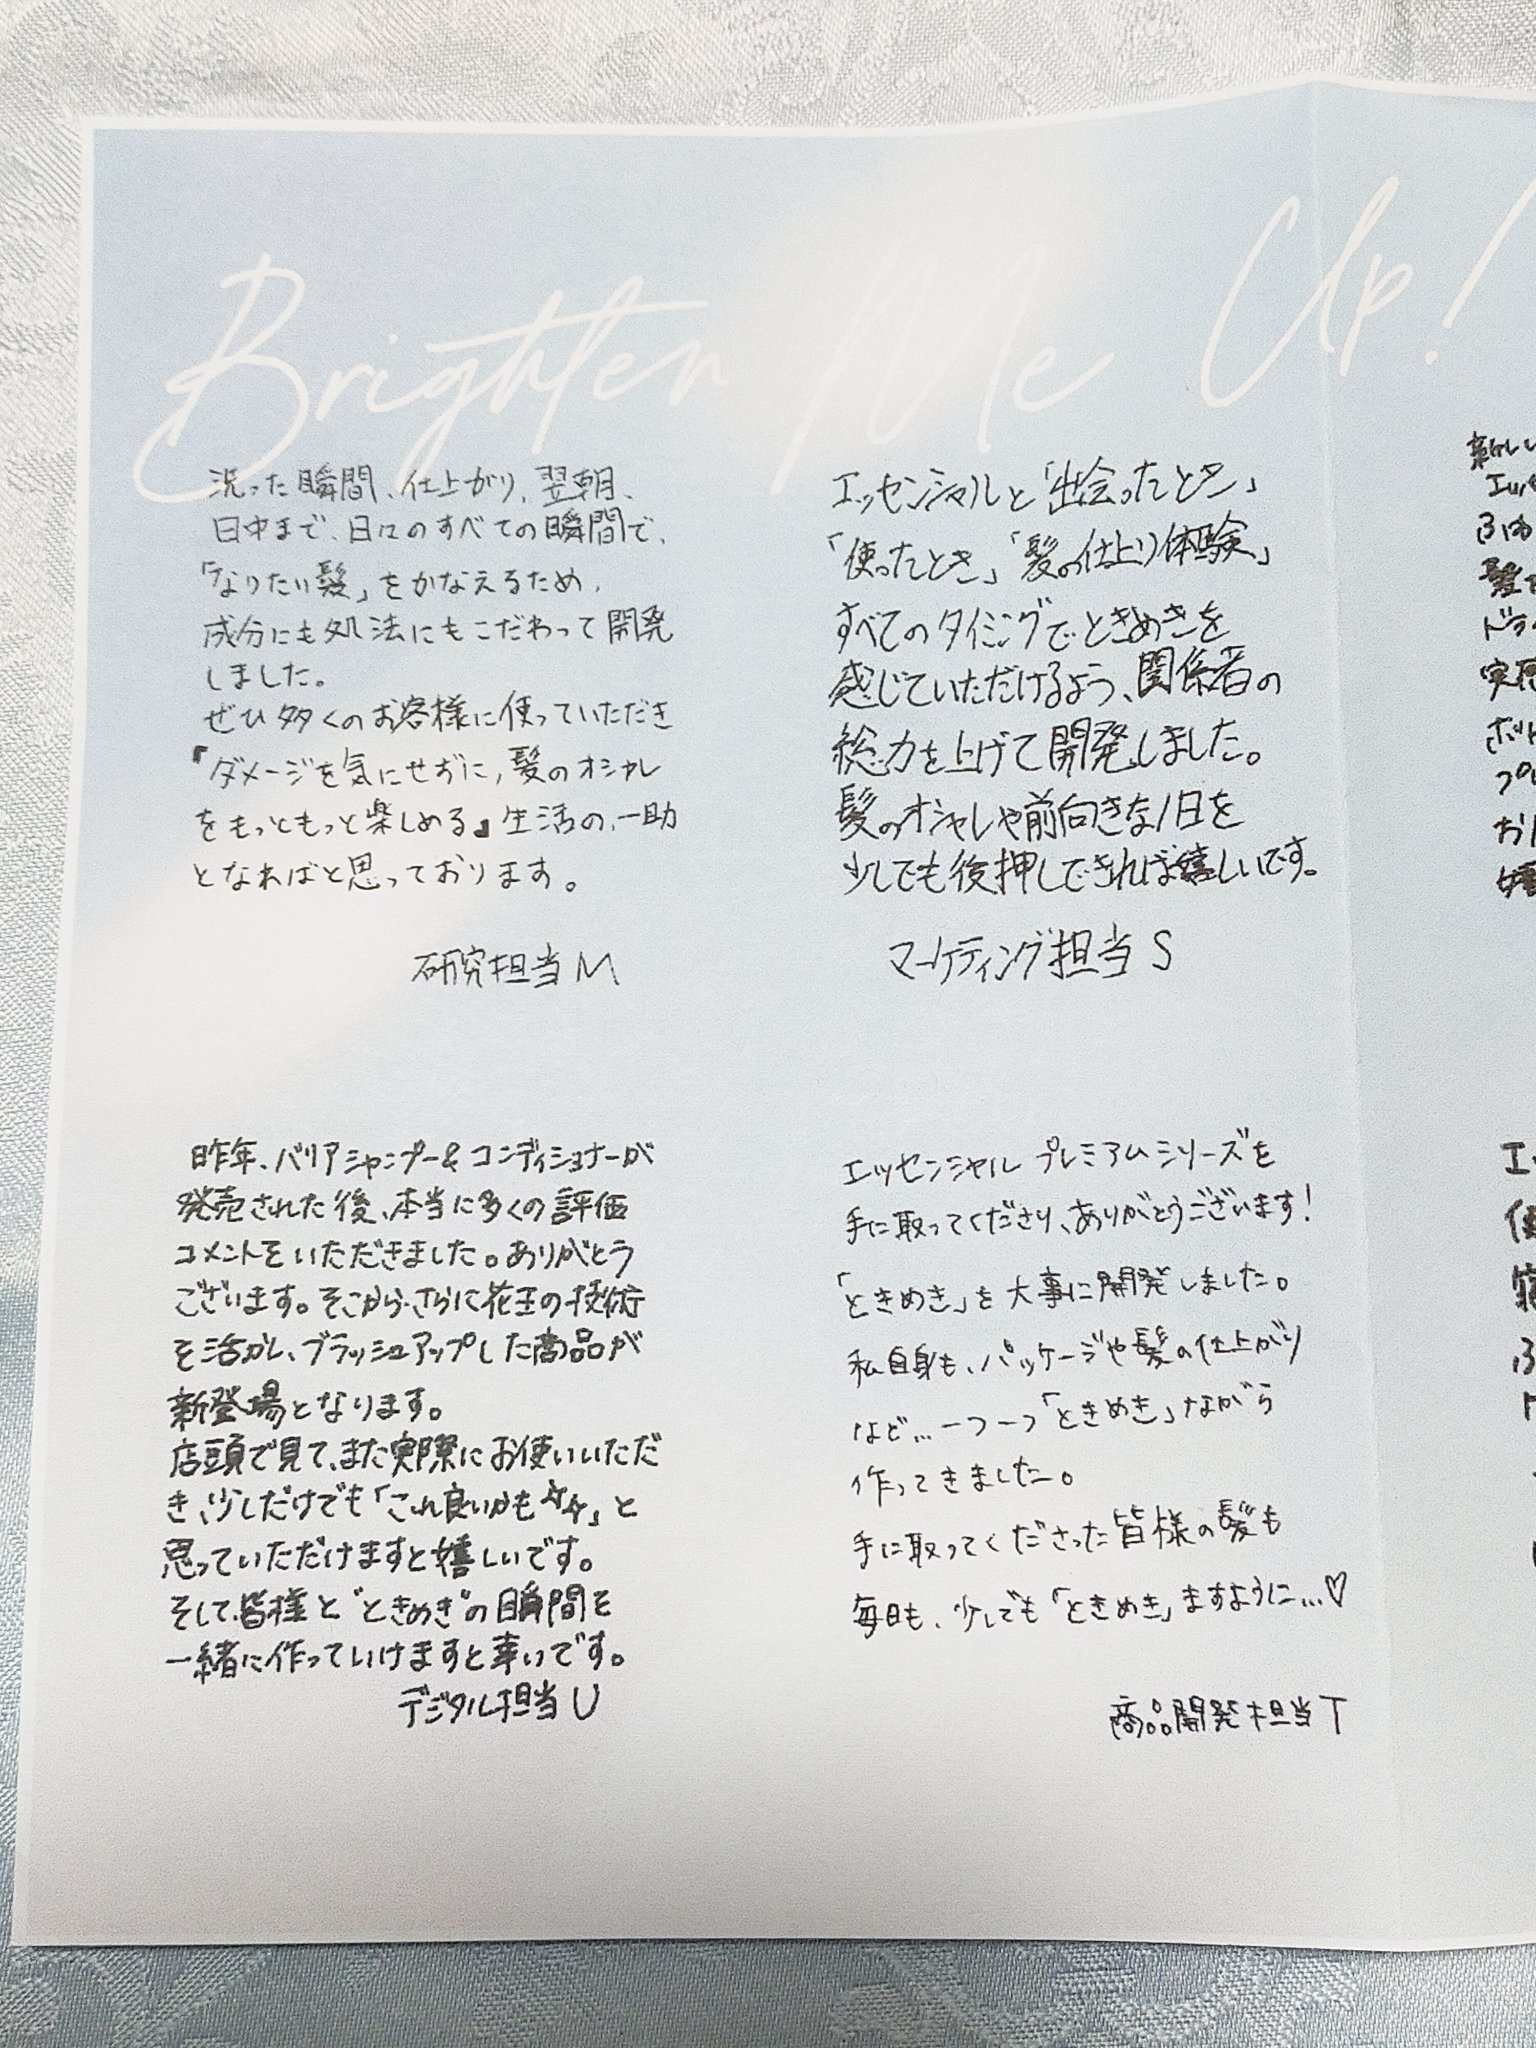 Brighten Me Up!
洗った瞬間、仕上がり、翌朝、
日中まで、日々のすべての瞬間で、
「なりたい髪」をかなえるため、
成分にも処法にもこだわって開発
しました。
ぜひ多くのお客様に使っていただき
『ダメージを気にせずに、髪のオシャレ
をもっともっと楽しめる』生活の、一助
となればと思っております。
研究担当M
エッセンシャルと「出会ったとき」
「使ったとき」「髪の仕上り体験」
すべてのタイミングでときめきを
感じていただけるよう、関係者の
総力を上げて開発しました。
髪のオシャレや前向きな1日を
少しでも後押しできれば嬉しいです。
マーケティング担当S
昨年、バリアシャンプー&コンディショナーが
発売された後、本当に多くの評価
コメントをいただきました。ありがとう
ございます。そこから、さらに花王の技術
を活かし、ブラッシュアップした商品が
新登場となります。
店頭で見て、また実際にお使いいただ
き、少しだけでも「これ良いかも☆☆」と
思っていただけますと嬉しいです。
そして、皆様と"ときめき"の瞬間を
一緒に作っていけますと幸いです。
デジタル担当U
エッセンシャル プレミアムシリーズを
手に取ってくださり、ありがとうございます!
「ときめき」を大事に開発しました。
私自身も、パッケージや髪の仕上がり
など…一つ一つ「ときめき」ながら
作ってきました。
手に取ってくださった皆様の髪も
毎日も、少しでも「ときめき」ますように…♡
商品開発担当T
新しい
ふわ
髪
ドラ
実際
ボト
プレ
お
嬉
エ
使